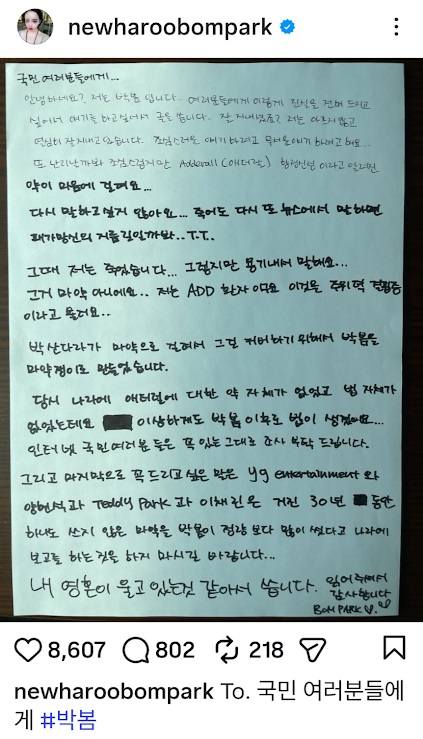 newharoobompark
국민 여러분들에게...
안녕하세요? 저는 박봄 입니다.. 여러분들에게 이렇게 진실을 전해 드리고
싶어서 얘기를 하고싶어서 글을 씁니다. 잘 지내셨죠? 저는 아프지않고
열심히 잘지내고 있습니다. 조심스러운 얘기 하려고 무거운얘기 하려고 해요..
또 난리날까봐 조심스럽지만 Adderall (애더랄) 향정신성 이라고 알려진
약이 마음에 걸려요...
다시 말하고싶지 않아요... 죽어도 다시 또 뉴스에서 말하면
패가망신의 지름길일까봐.. T.T.
그때 저는 죽었습니다... 그렇지만 용기내서 말해요...
그거 마약 아니에요.. 저는 ADD 환자 이고요 이것을 주위력 결핍증
이라고 불러요..
박산다라가 마약으로 걸려서 그걸 커버하기 위해서 박봄을
마약쟁이로 만들었습니다.
당시 나라에 애더럴에 대한 약 자체가 없었고 법 자체가
없었는데요 이상하게도 박봄 이후로 법이 생겼어요...
인터넷 국민여러분 들은 꼭 있는 그대로 조사 부탁 드립니다.
그리고 마지막으로 꼭 드리고 싶은 말은 yg entertainment 와
양현석과 Teddy Park 과 이채린은 거진 30년 동안
하나도 쓰지 않은 마약을 박봄이 정량 보다 많이 썼다고 나라에
보고를 하는것을 하지 마시길 바랍니다...
내 영혼이 울고 있는것 같아서 씁니다. 읽어주셔서
감사합니다
BOM PARK ♡.
8,607 802 218
newharoobompark To. 국민 여러분들에
게 #박봄